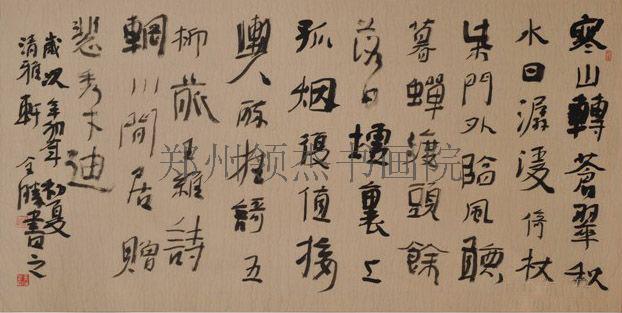 寒山轉蒼翠秋
水日潺湲倚杖
柴門外臨風聽
暮蟬渡頭餘
落日墟裏上
孤烟復值接
輿醉狂歌五
柳前王維詩
輞川閒居贈
裴秀才迪
歲次初夏
清雅軒全勝書之
郑州杰书画院